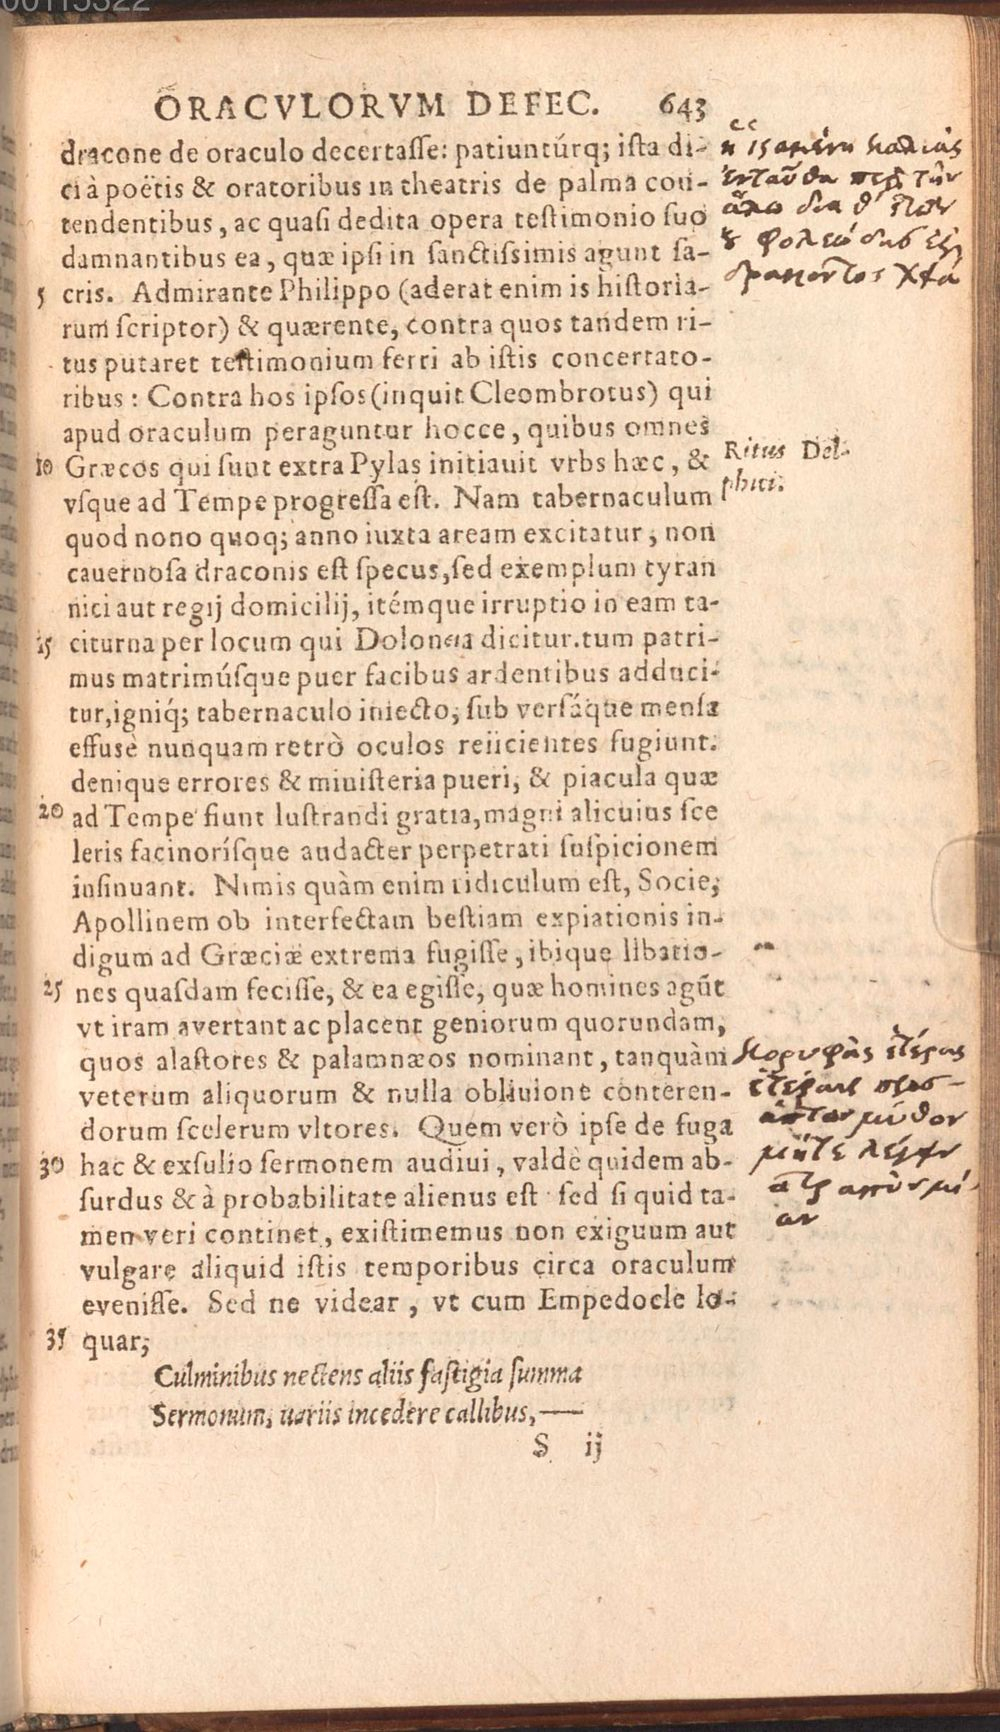 00115322
ORACVLORVM DEFEC. 643
dracone de oraculo decertaſſe: patiuntúrq; iſta di-
ci à poëtis & oratoribus in theatris de palma con-
tendentibus, ac quaſi dedita opera teſtimonio ſuo
damnantibus ea, quæ ipſi in ſanctiſsimis agunt ſa-
5 cris. Admirante Philippo (aderat enim is hiſtoria-
rum ſcriptor) & quærente, contra quos tandem ri-
tus putaret teſtimonium ferri ab iſtis concertato-
ribus: Contra hos ipſos (inquit Cleombrotus) qui
apud oraculum peraguntur hocce, quibus omnes
10 Græcos qui ſunt extra Pylas initiauit vrbs hæc, &
vſque ad Tempe progreſſa eſt. Nam tabernaculum
quod nono quoq; anno iuxta aream excitatur, non
cauernoſa draconis eſt ſpecus, ſed exemplum tyran
nici aut regij domicilij, itémque irruptio in eam ta-
15 citurna per locum qui Doloneia dicitur. tum patri-
mus matrimúſque puer facibus ardentibus adduci-
tur, igniq́; tabernaculo iniecto, ſub verſáque menſa
effuse nunquam retrò oculos reiicientes fugiunt.
denique errores & miniſteria pueri, & piacula quæ
20 ad Tempe fiunt luſtrandi gratia, magni alicuius ſce
leris facinoríſque audacter perpetrati ſuſpicionem
inſinuant. Nimis quàm enim ridiculum eſt, Socie,
Apollinem ob interfectam beſtiam expiationis in-
digum ad Græciæ extrema fugiſſe, ibique libatio-
25 nes quaſdam feciſſe, & ea egiſſe, quæ homines agūt
vt iram avertant ac placent geniorum quorundam,
quos alaſtores & palamnæos nominant, tanquàm
veterum aliquorum & nulla obliuione conteren-
dorum ſcelerum vltores. Quem verò ipſe de fuga
30 hac & exſulio ſermonem audiui, valdè quidem ab-
ſurdus & à probabilitate alienus eſt ſed ſi quid ta-
men veri continet, exiſtimemus non exiguum aut
vulgare aliquid iſtis temporibus circa oraculum
eveniſſe. Sed ne videar, vt cum Empedocle lo-
35 quar,
Culminibus nectens aliis faſtigia ſumma
Sermonum, uariis incedere callibus,—
S ij
ἡ ἱσταμένη καλιὰς
ἐνταῦθα περὶ τὴν
ἅλω
δράκοντος χειὰ
Ritus Del-
phici.
κορυφὰς ἑτέρας
ἑτέραις προσ-
άπτων μύθων
μήτε λέγειν
ἀτραπὸν μί-
αν